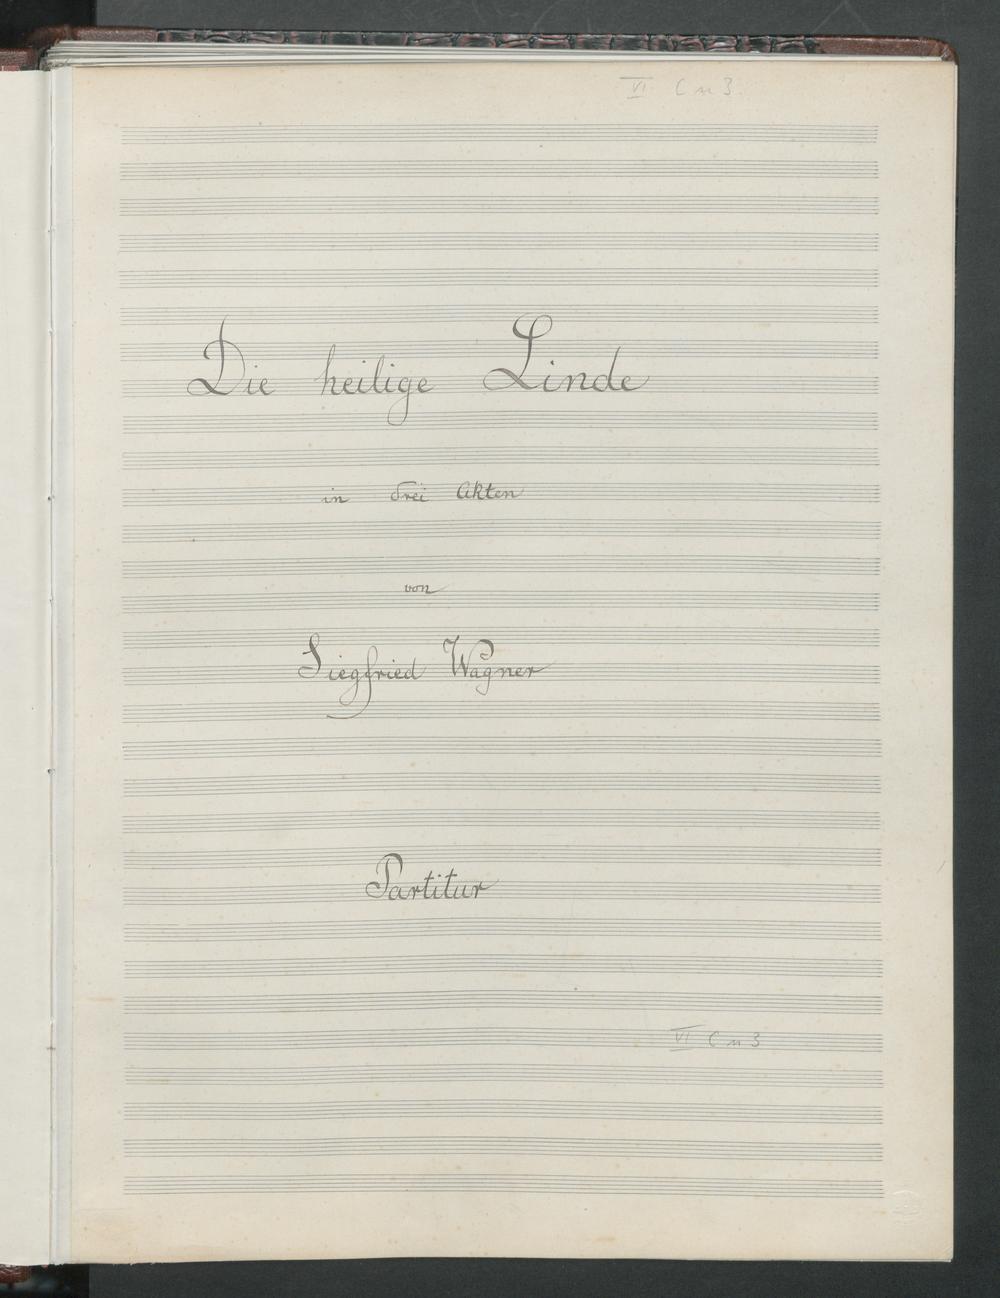 VI C n 3.
Die heilige Linde
in drei Akten
von
Siegfried Wagner
Partitur
VI C n 3